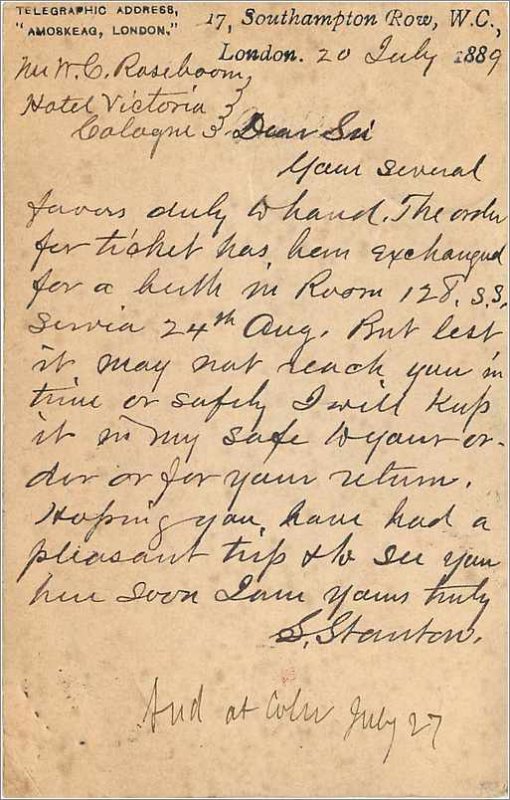 TELEGRAPHIC ADDRESS,
"AMOSKEAG, LONDON."
17, Southampton Row, W.C.,
London. 20 July 1889
Mr W. C. Roseboom
Hotel Victoria
Cologne
Dear Sir
Your several
favors duly to hand. The order
for ticket has been exchanged
for a berth in Room 128. S.S.
Servia 24th Aug. But lest
it may not reach you in
time or safely I will keep
it in my safe to your or-
der or for your return.
Hoping you have had a
pleasant trip & to see you
here soon I am yours truly
S. Stanton.
at Coln July 27